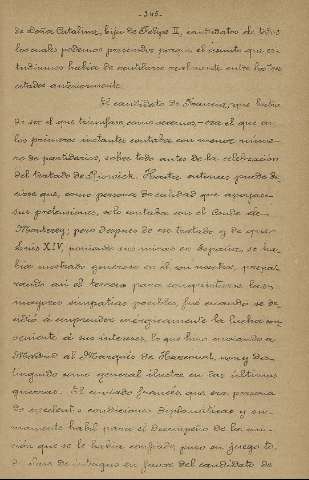 - 345 -
de Doña Catalina, hija de Felipe II, candidatos de todos
los cuales podemos prescindir porque el asunto que es-
tudiamos había de ventilarse realmente entre los tres
citados anteriormente.
El candidato de Francia, que había
de ser el que triunfase, como veremos, era el que en
los primeros instantes contaba con menor núme-
ro de partidarios, sobre todo antes de la celebración
del tratado de Riswick. Hasta entonces puede de-
cirse que, como persona de calidad que apoyase
sus pretensiones, solo contaba con el Conde de
Monterrey; pero después de ese tratado y de que
Luis XIV, poniendo sus miras en España, se ha-
bía mostrado generoso en él con nosotros, prepa-
rando así el terreno para conquistarse las
mayores simpatías posibles, fué cuando se de-
cidió a emprender enérgicamente la lucha con-
veniente á sus intereses, lo que hizo enviando a
Madrid al Marqués de Harcourt, noble y dis-
tinguido como general ilustre en las últimas
guerras. El enviado francés, que era persona
de excelentes condiciones diplomáticas y su-
mamente hábil para el desempeño de la mi-
sión que se le había confiado, puso en juego to-
da clase de intrigas en favor del candidato de